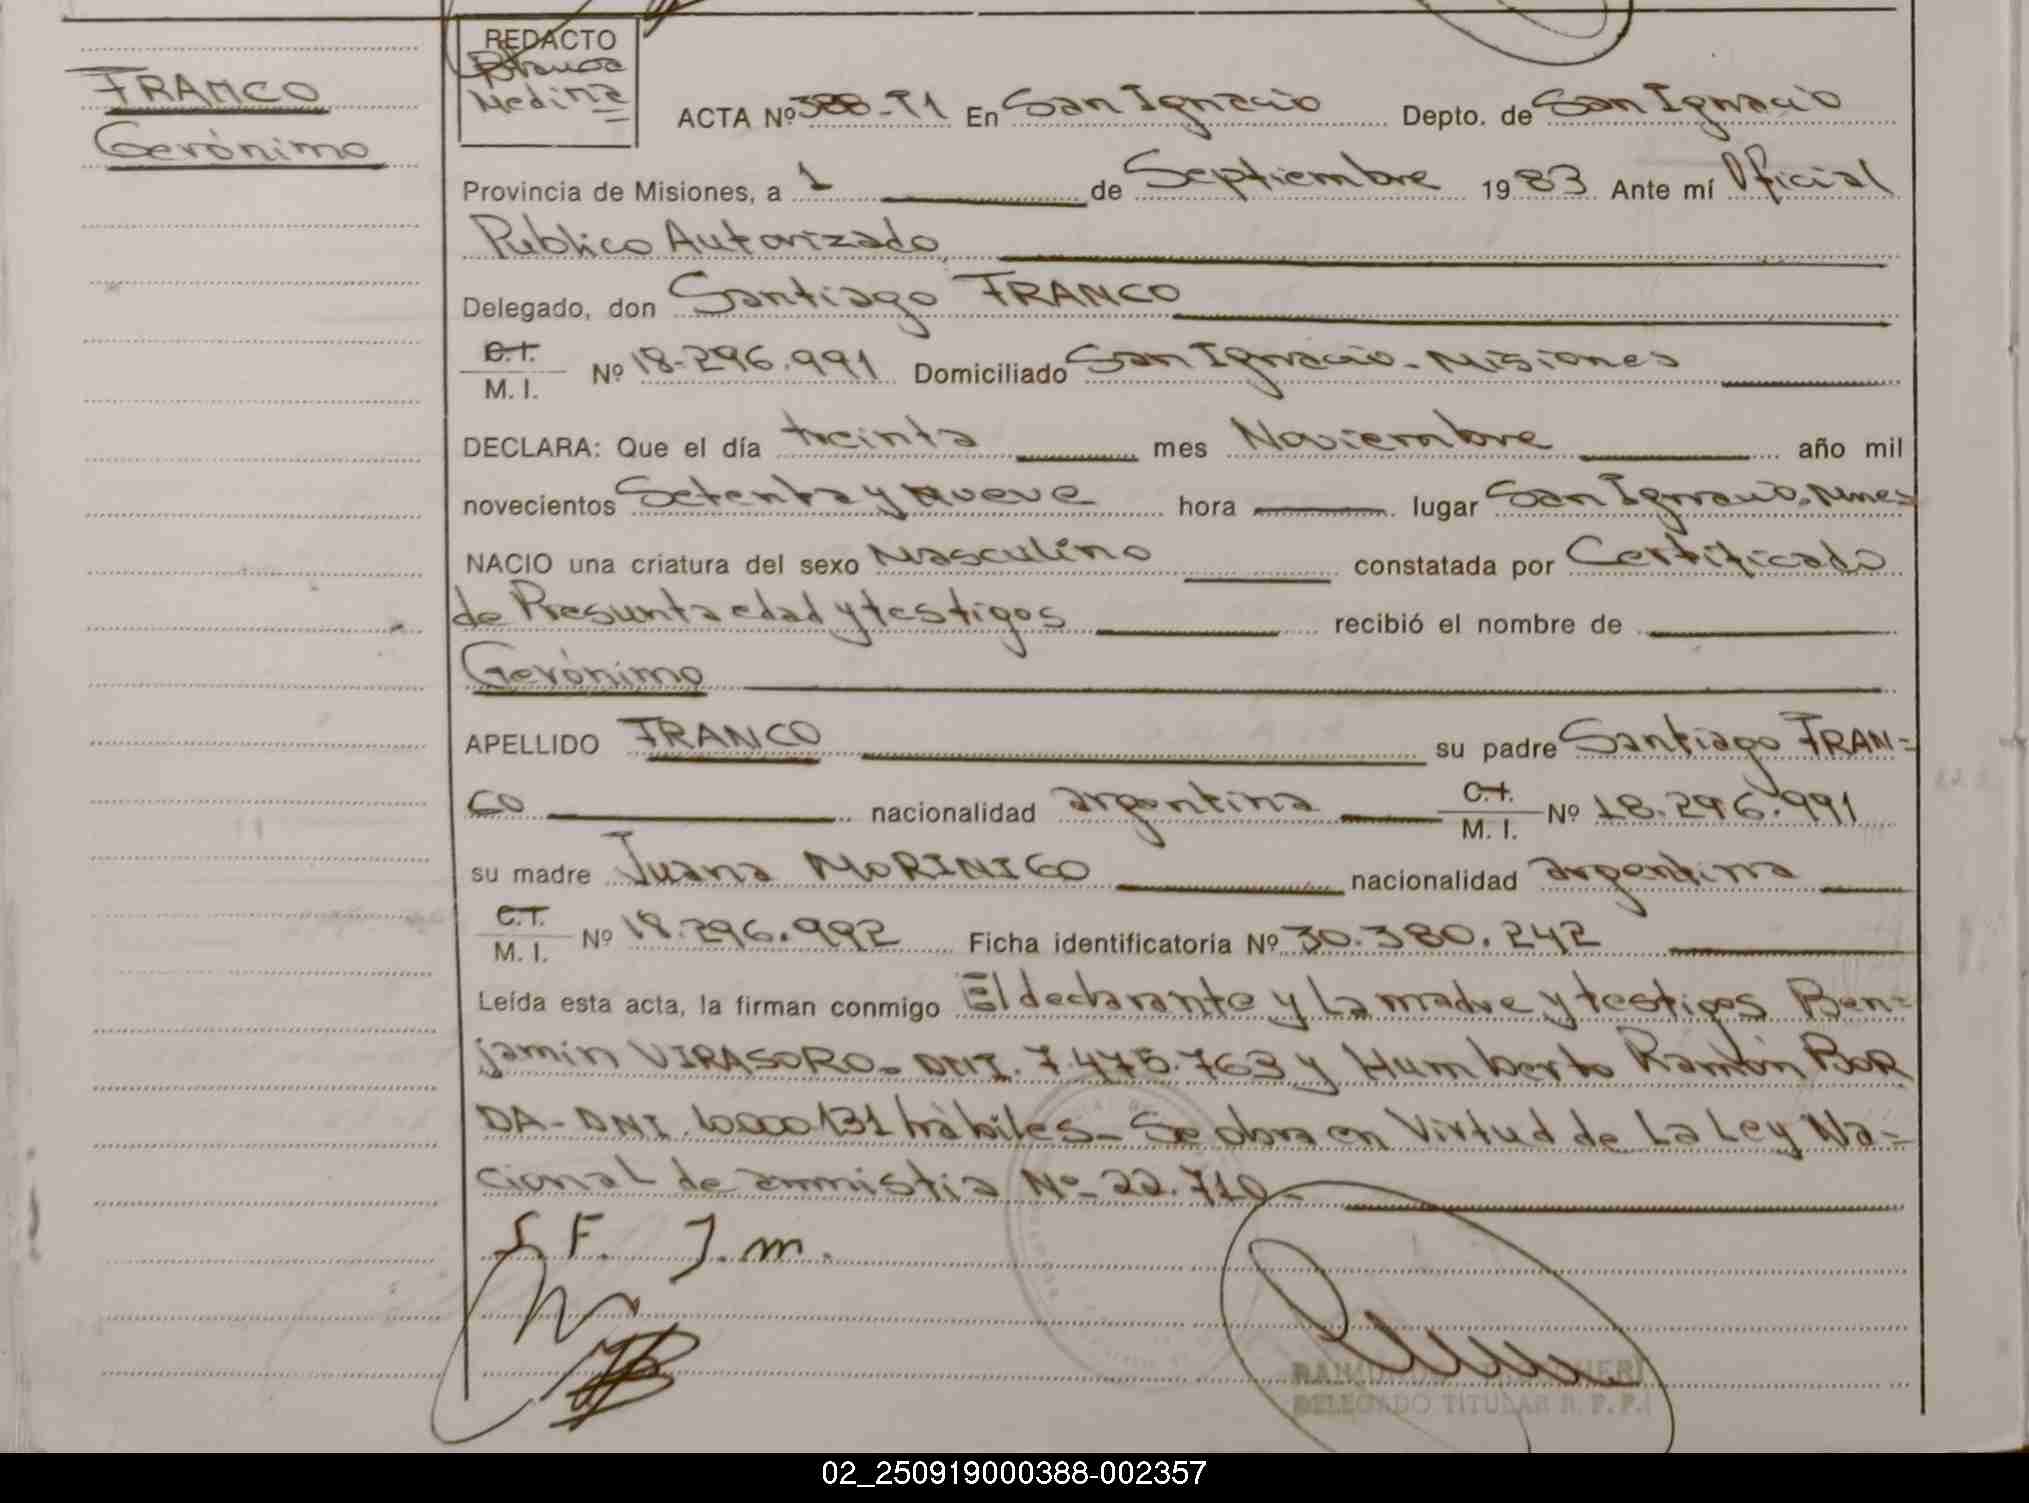 FRANCO
Gerónimo
REDACTO
Blanca
Medina
ACTA Nº 388-T1 En San Ignacio Depto. de San Ignacio
Provincia de Misiones, a 1 de Septiembre 1983. Ante mí Oficial
Publico Autorizado
Delegado, don Santiago FRANCO
C.I.
M. I. Nº 18-296.991 Domiciliado San Ignacio - Misiones
DECLARA: Que el día treinta mes Noviembre año mil
novecientos Setenta y Nueve hora lugar San Ignacio. Mnes
NACIO una criatura del sexo Masculino constatada por Certificado
de Presunta edad y testigos recibió el nombre de
Gerónimo
APELLIDO FRANCO su padre Santiago FRAN=
CO nacionalidad argentina C.I. M. I. Nº 18.296.991
su madre Juana MORINIGO nacionalidad argentina
C.I.
M. I. Nº 18.296.992 Ficha identificatoria Nº 30.380.242
Leída esta acta, la firman conmigo El declarante y La madre y testigos Ben=
jamin VIRASORO- DNI. 7.475.763 y Humberto Ramón BOR
DA- DNI. 10.000.131 hábiles- Se obra en Virtud de La Ley Na=
cional de amnistia Nº- 22.710-
S. F. J. m.
DELEGADO TITULAR R. P. P.
02_250919000388-002357